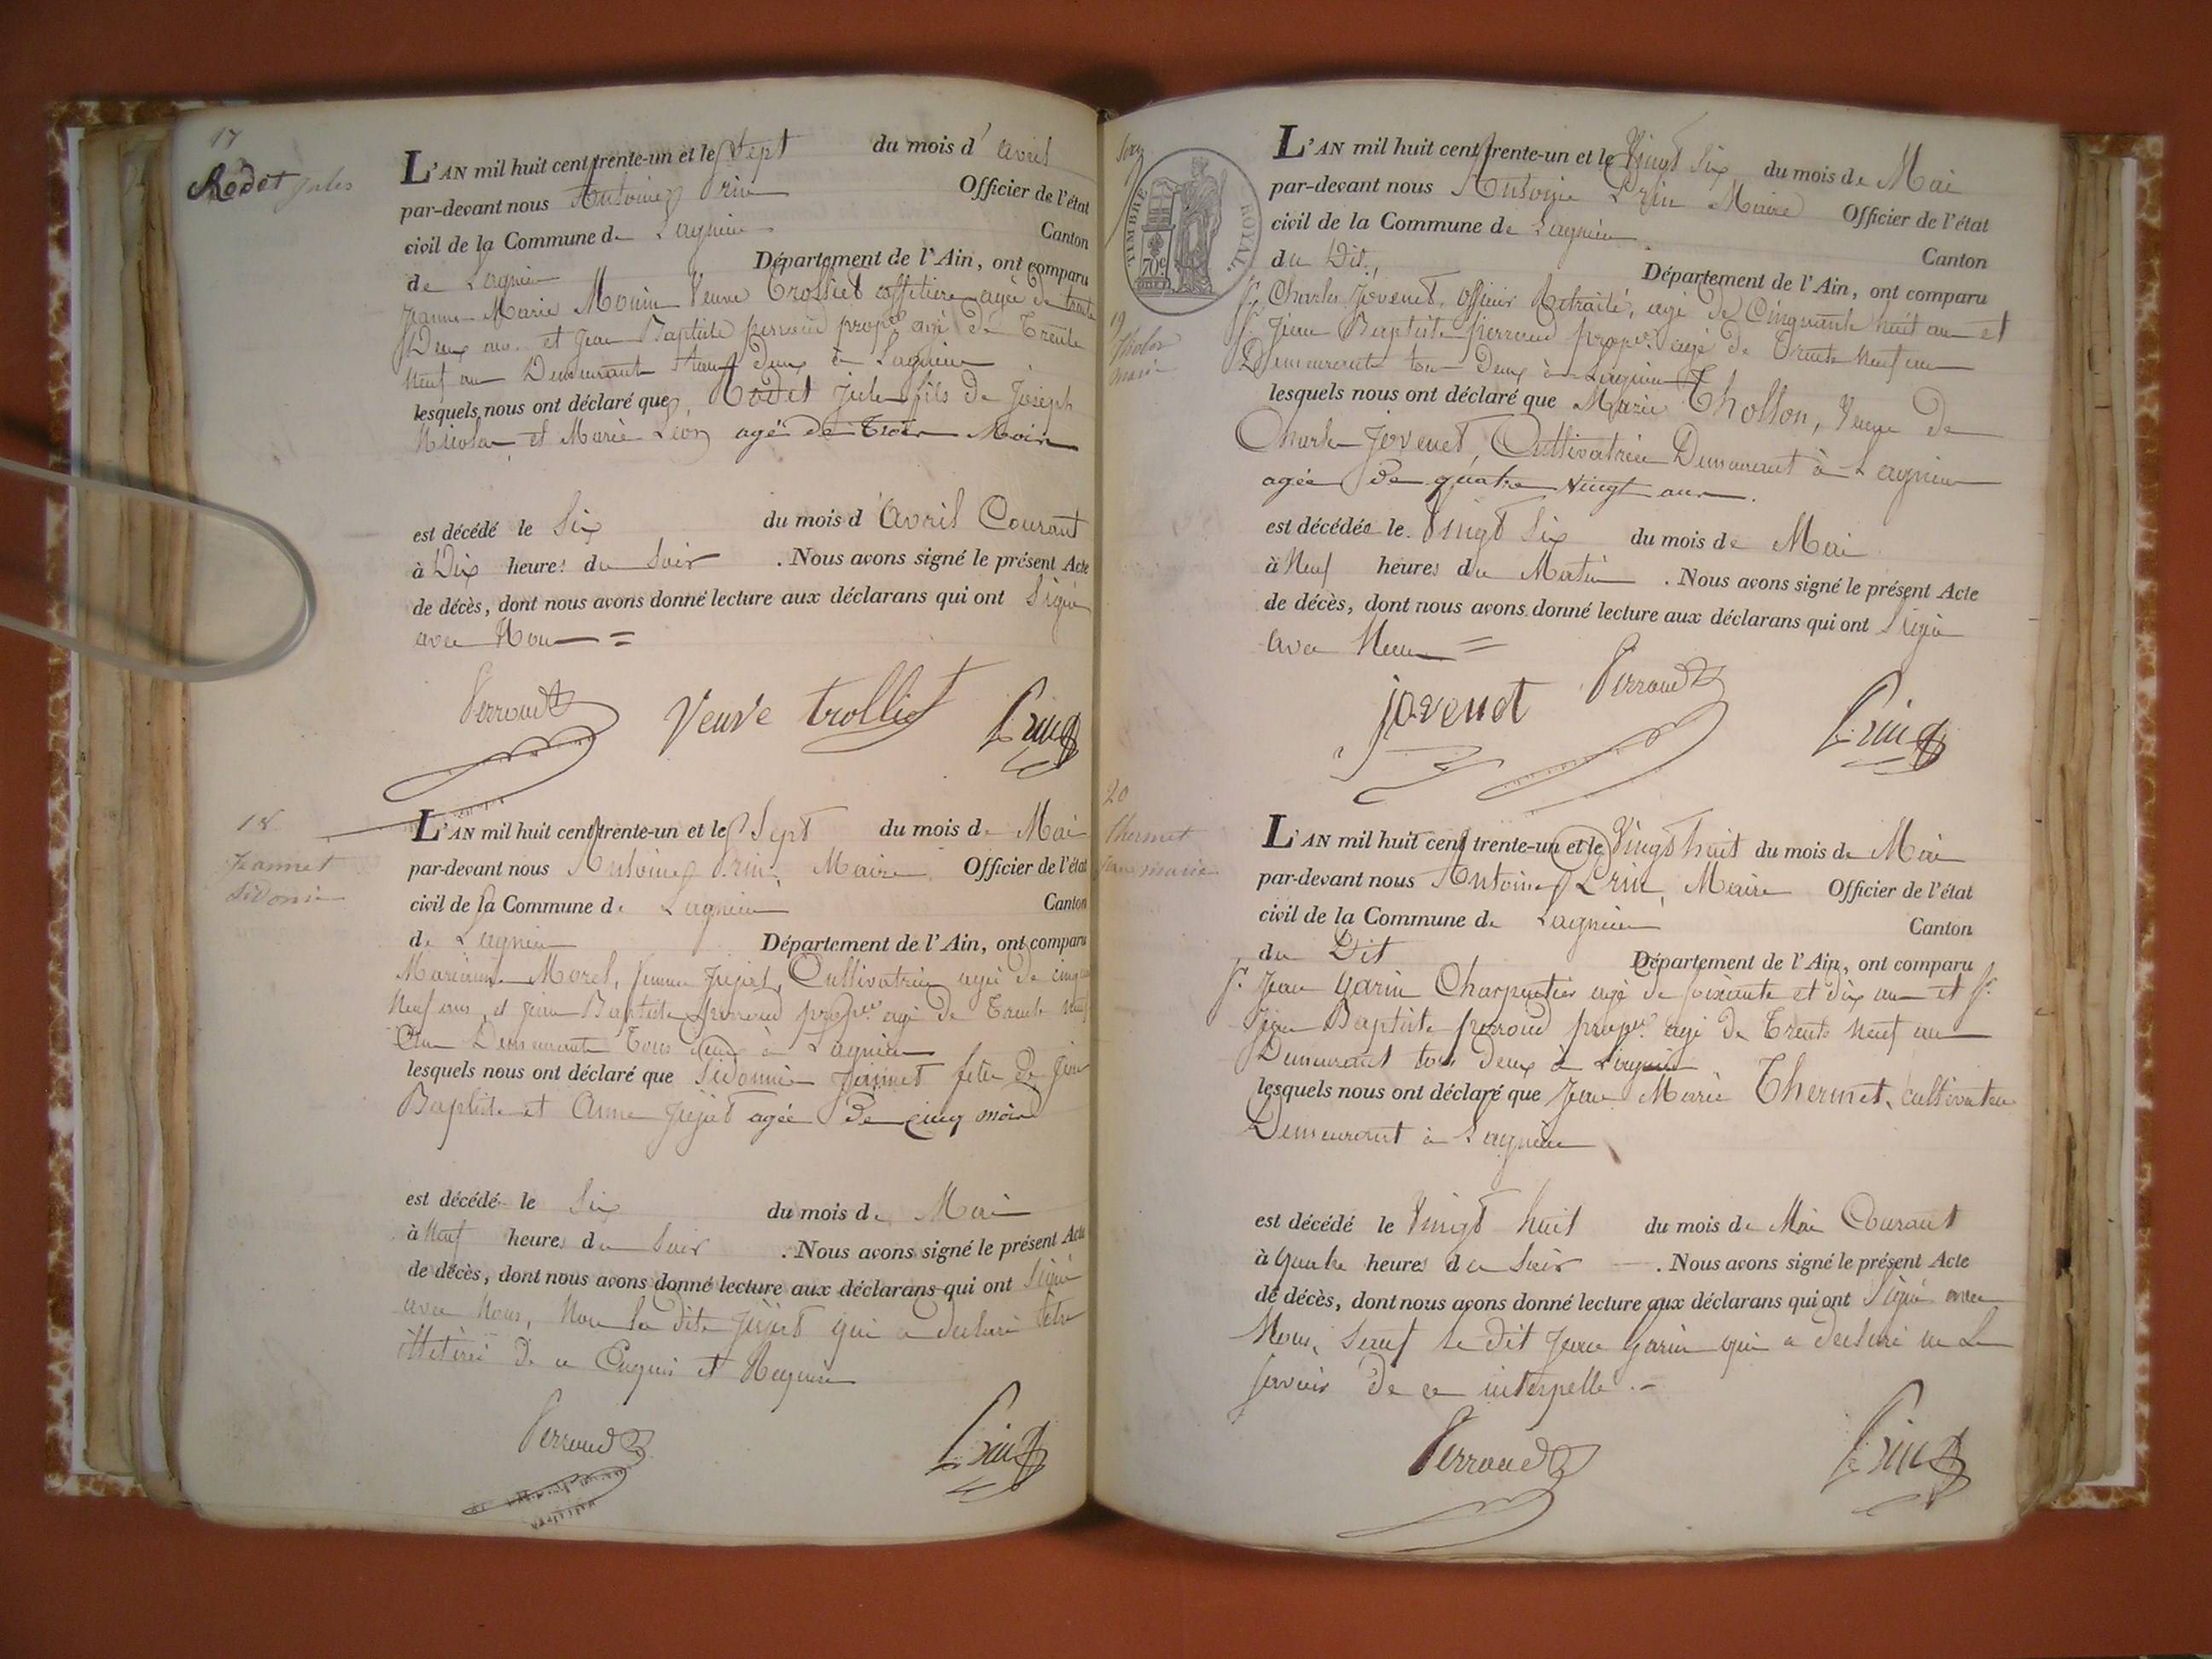 17
Rodet Jules
L'AN mil huit cent trente-un et le Sept du mois d'avril
par-devant nous Antoine Prin Officier de l'état
civil de la Commune de Lagnieu Canton
de Lagnieu Département de l'Ain, ont comparu
Jeanne Marie Monin Veuve Trolliet caffetiere agée de trente
Deux ans et Jean Baptiste perroud propre agé de Trente
Neuf ans Demeurant tous deux à Lagnieu
lesquels nous ont déclaré que Rodet Jules fils de Joseph
Nicolas et Marie agé de Trois Mois
est décédé le Six du mois d'avril Courant
à Dix heures du Soir . Nous avons signé le présent Acte
de décès, dont nous avons donné lecture aux déclarans qui ont Signé
avec Nous =
Perroud Veuve trolliet Prin
18
Jeannet
Sidonie
L'AN mil huit cent trente-un et le Sept du mois de Mai
par-devant nous Antoine Prin Maire Officier de l'état
civil de la Commune de Lagnieu Canton
de Lagnieu Département de l'Ain, ont comparu
Marianne Morel, femme Jujat, Cultivatrice agée de cinq
Neuf ans, et Jean Baptiste perroud propre agé de Trente Neuf
Ans Demeurant Tous deux à Lagnieu
lesquels nous ont déclaré que Sidonie Jeannet fille de Jean
Baptiste et Anne Jujat agée De cinq mois
est décédé le Six du mois de Mai
à Neuf heures du Soir . Nous avons signé le présent Acte
de décès, dont nous avons donné lecture aux déclarans qui ont Signé
avec Nous, Non la dite Jujat qui a declaré être
illitérée De ce Enquis et Requise
Perroud Prin
TIMBRE ROYAL
70c
19
Tholon
Marie
L'AN mil huit cent trente-un et le Vingt Six du mois de Mai
par-devant nous Antoine Prin Maire Officier de l'état
civil de la Commune de Lagnieu Canton
du Dit, Département de l'Ain, ont comparu
Sr. Charles Jovenet, officier Retraité, agé de Cinquante huit ans et
Sr. Jean Baptiste perroud propre agé de Trente Neuf ans
Demeurant tous Deux à Lagnieu
lesquels nous ont déclaré que Marie Thollon, Veuve de
Charles Jovenet, Cultivatrice Demeurant à Lagnieu
agée De quatre Vingt ans.
est décédée le Vingt Six du mois de Mai
à Neuf heures du Matin . Nous avons signé le présent Acte
de décès, dont nous avons donné lecture aux déclarans qui ont Signé
avec Nous =
jovenet Perroud Prin
20
thermet
jean marie
L'AN mil huit cent trente-un et le Vingt huit du mois de Mai
par-devant nous Antoine Prin, Maire Officier de l'état
civil de la Commune de Lagnieu Canton
du Dit Département de l'Ain, ont comparu
Sr. Jean Garin Charpentier agé de soixante et dix ans et Sr.
Jean Baptiste perroud propre agé de Trente Neuf ans
Demeurant tous deux à Lagnieu
lesquels nous ont déclaré que Jean Marie Thermet, cultivateur
Demeurant à Lagnieu
est décédé le Vingt huit du mois de Mai Courant
à Quatre heures du Soir . Nous avons signé le présent Acte
de décès, dont nous avons donné lecture aux déclarans qui ont Signé avec
Nous, Sauf le dit Jean Garin qui a declaré ne Le
savoir De ce interpellé.
Perroud Prin